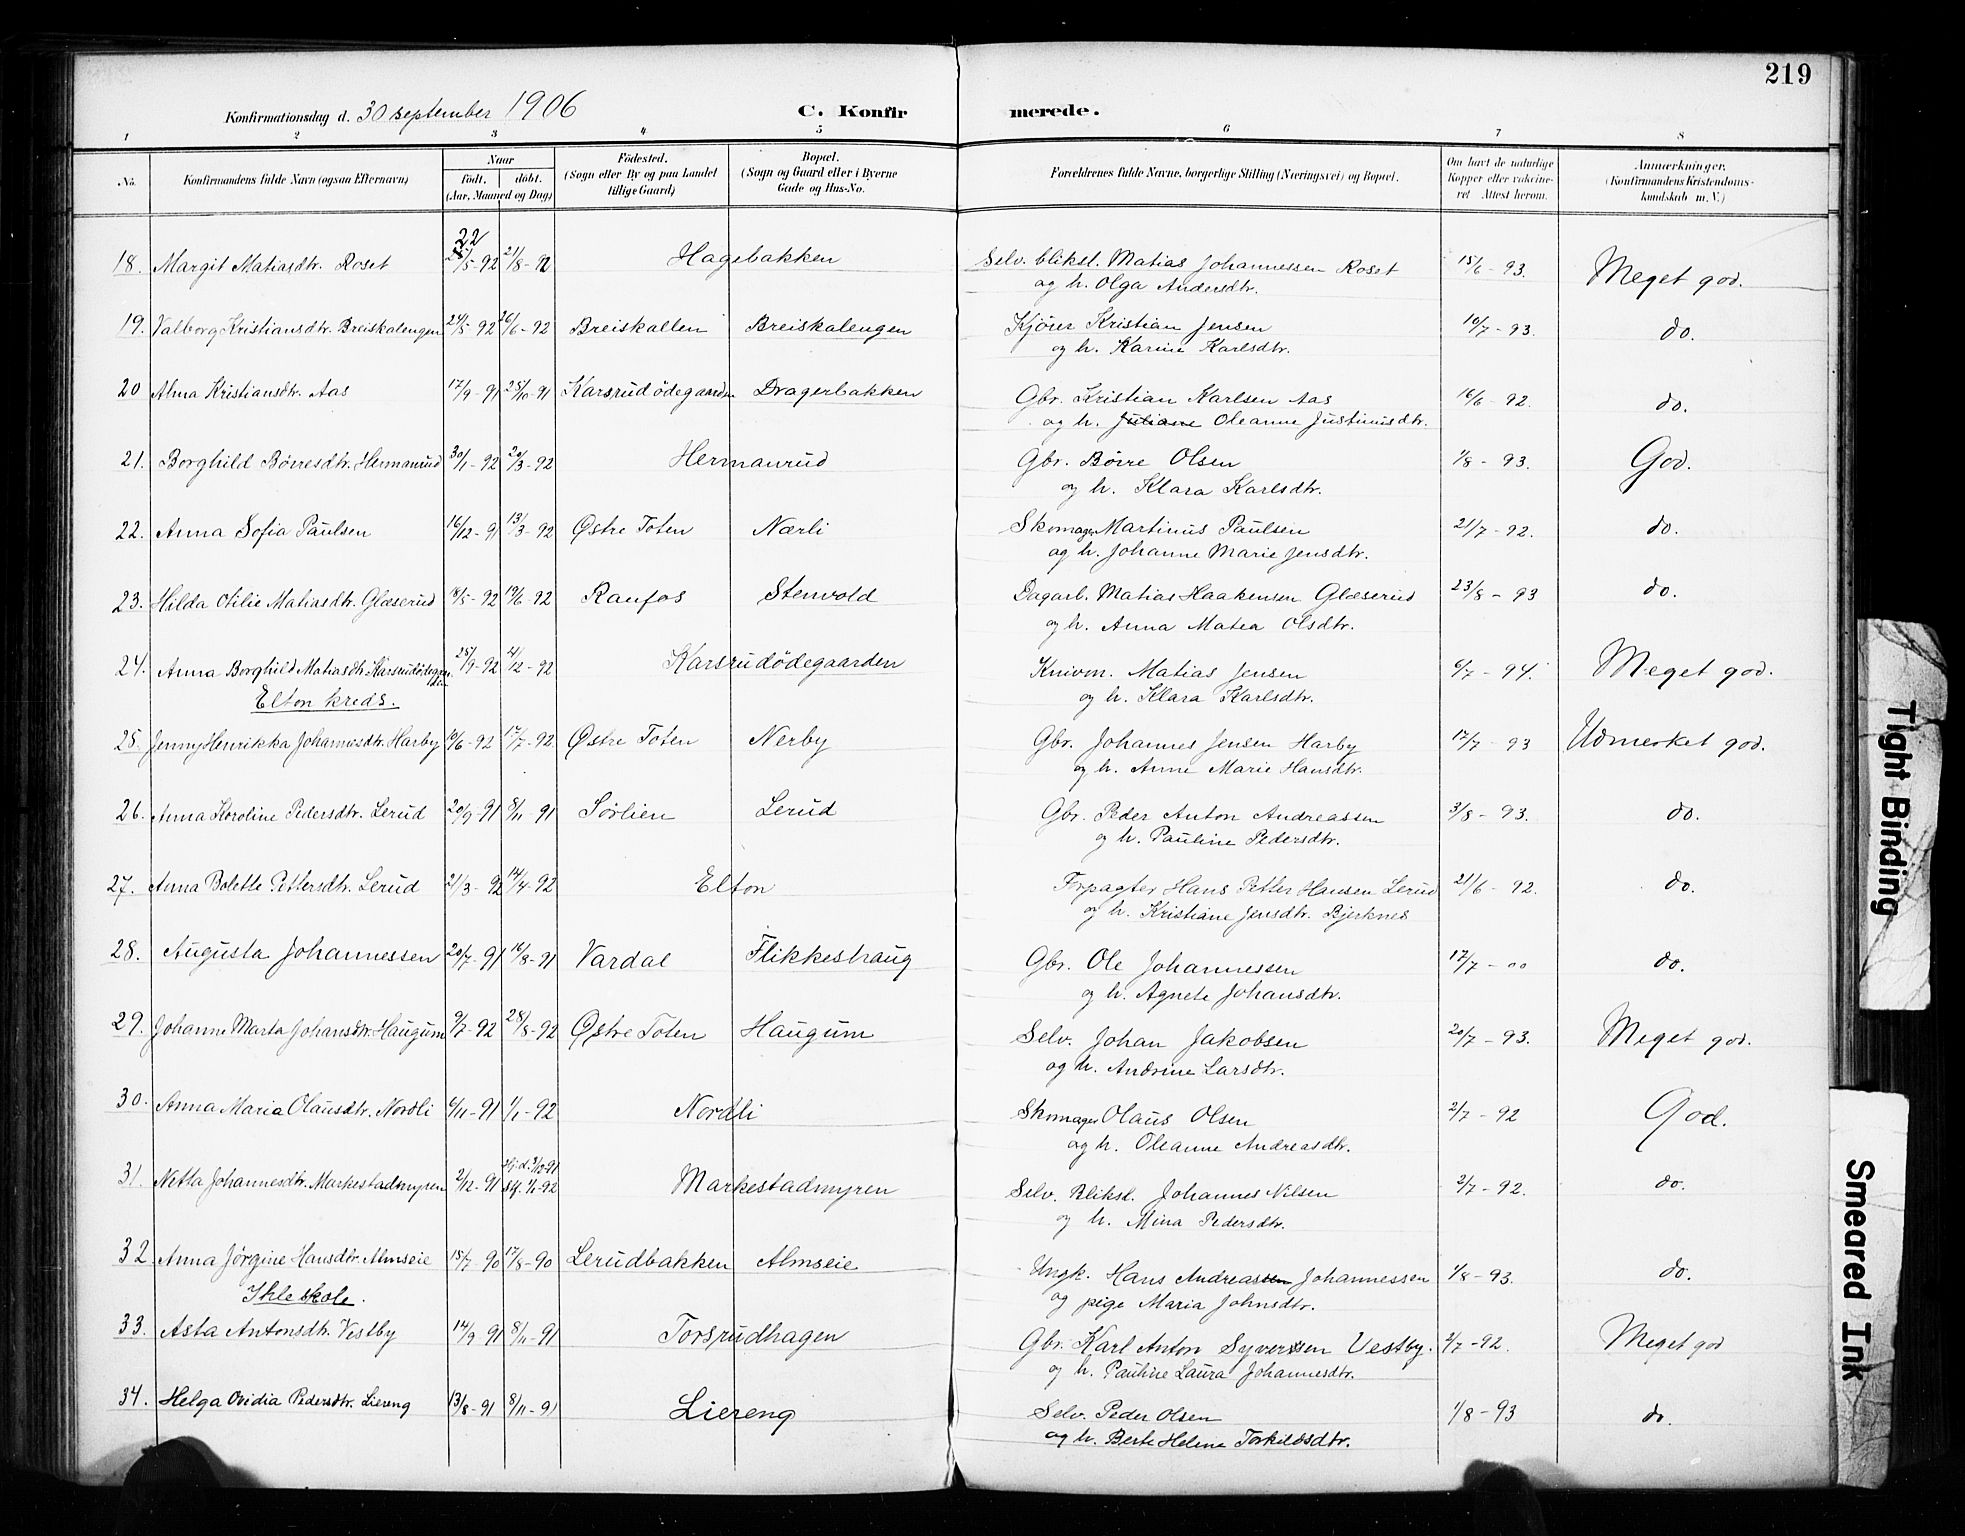 219
Konfirmationsdag d. 30 september 1906 C. Konfirmerede.
1 2 3 4 5 6 7 8
No. Konfirmandens fulde Navn (ogsaa Efternavn) Naar født. døbt. (Aar, Maaned og Dag) Fødested. (Sogn eller By og paa Landet tillige Gaard) Bopæl. (Sogn og Gaard eller i Byerne Gade og Hus-No. Forældrenes fulde Navne, borgerlige Stilling (Næringsvei) og Bopæl. Om havt de naturlige Kopper eller vakcineret Attest herom. Anmærkninger. (Konfirmandens Kristendomskundskab m. V.)
22
18. Margit Matiasdtr. Roset /5-92 21/8-92 Hagebakken Selv. bliksl. Matias Johannessen Roset 15/6-93. Meget god.
og h. Olga Andersdtr.
19. Valborg Kristiansdtr. Breiskalengen 24/5-92 26/6-92 Breiskallen Breiskalengen Kjører Kristian Jensen 10/7-93. do.
og h. Karine Karlsdtr.
20 Alma Kristiansdtr. Aas 17/9-91 25/10-91 Karsrudødegaarden Dragerbakken Gbr. Kristian Karlsen Aas 16/6-92. do.
og h. Juliane Oleanne Justinusdtr.
21. Borghild Børresdtr. Hermanrud 30/1-92 20/3-92 Hermanrud Gbr. Børre Olsen 1/8-93. God.
og h. Klara Karlsdtr.
22. Anna Sofia Paulsen 16/12-91 13/3-92 Østre Toten Nærli Skomager Martinus Paulsen 21/7-92. do.
og h. Johanne Marie Jensdtr.
23. Hilda Otilie Matiasdtr. Glæserud /5-92 19/6-92 Raufos Stenvold Dagarb. Matias Haakensen Glæserud 23/8-93 do.
og h. Anna Matea Olsdtr.
24. Anna Borghild Matiasdtr. Karsrudødegaarden 25/9-92 4/12-92 Karsrudødegaarden Knivm. Matias Jensen 6/7-94. Meget god.
Elton kreds. og h. Klara Karlsdtr.
25. Jenny Henrikka Johannesdtr. Harby 10/6-92 17/7-92 Østre Toten Nerby Gbr. Johannes Jensen Harby 17/7-93 Udmerket god.
og h. Anne Marie Hansdtr.
26. Anna Karoline Pedersdtr. Lerud 20/9-91 8/11-91 Sørlien Lerud Gbr. Peder Anton Andreassen 3/8-93. do.
og h. Pauline Pedersdtr.
27. Anna Bolette Pettersdtr. Lerud 21/3-92 14/4-92 Elton Forpagter Hans Petter Hansen Lerud 21/6-92. do.
og h. Kristiane Jensdtr. Bjerknes
28. Augusta Johannessen 20/7-91 16/8-91 Vardal Flikkeshaug Gbr. Ole Johannessen 17/7-00 do.
og h. Agnete Johansdtr.
29. Johanne Marta Johansdtr. Haugum 9/7-92 28/8-92 Østre Toten Haugum Selv. Johan Jakobsen 20/7-93. Meget god.
og h. Andrine Larsdtr.
30. Anna Maria Olausdtr. Nordli 6/11-91 1/1-92 Nordli Skomager Olaus Olsen 2/7-92 God.
og h. Oleanne Andreasdtr.
31. Netta Johannesdtr. Markestadmyren 2/12-91 Hj.d. 3/12-91 Markestadmyren Selv. Bliksl. Johannes Nilsen 2/7-92. do.
Stf. 1/1-92 og h. Mina Pedersdtr.
32. Anna Jørgine Hansdtr. Almseie 15/7-90 17/8-90 Lerudbakken Almseie Ungk. Hans Andreassen Johannessen 1/8-93. do.
Ihle skole. og pige Maria Johnsdtr.
33. Asta Antonsdtr. Vestby 14/9-91 8/11-91 Torsrudhagen Gbr. Karl Anton Syversen Vestby. 2/7-92. Meget god
og h. Pauline Laura Johannesdtr.
34. Helga Ovidia Pedersdtr. Liereng 13/8-91 8/11-91 Liereng Selv. Peder Olsen 1/8-93 do.
og h. Berte Helene Torkildsdtr.
Tight Binding
Smeared Ink